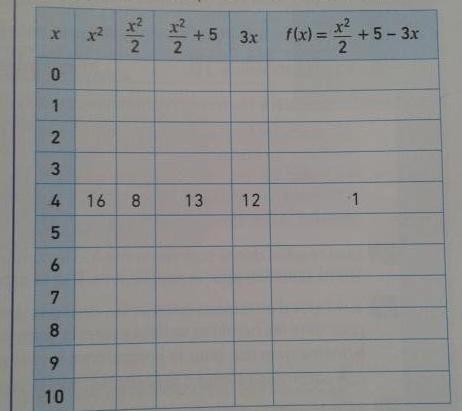 x x² x²/2 x²/2 + 5 3x f(x) = x²/2 + 5 − 3x
0
1
2
3
4 16 8 13 12 1
5
6
7
8
9
10